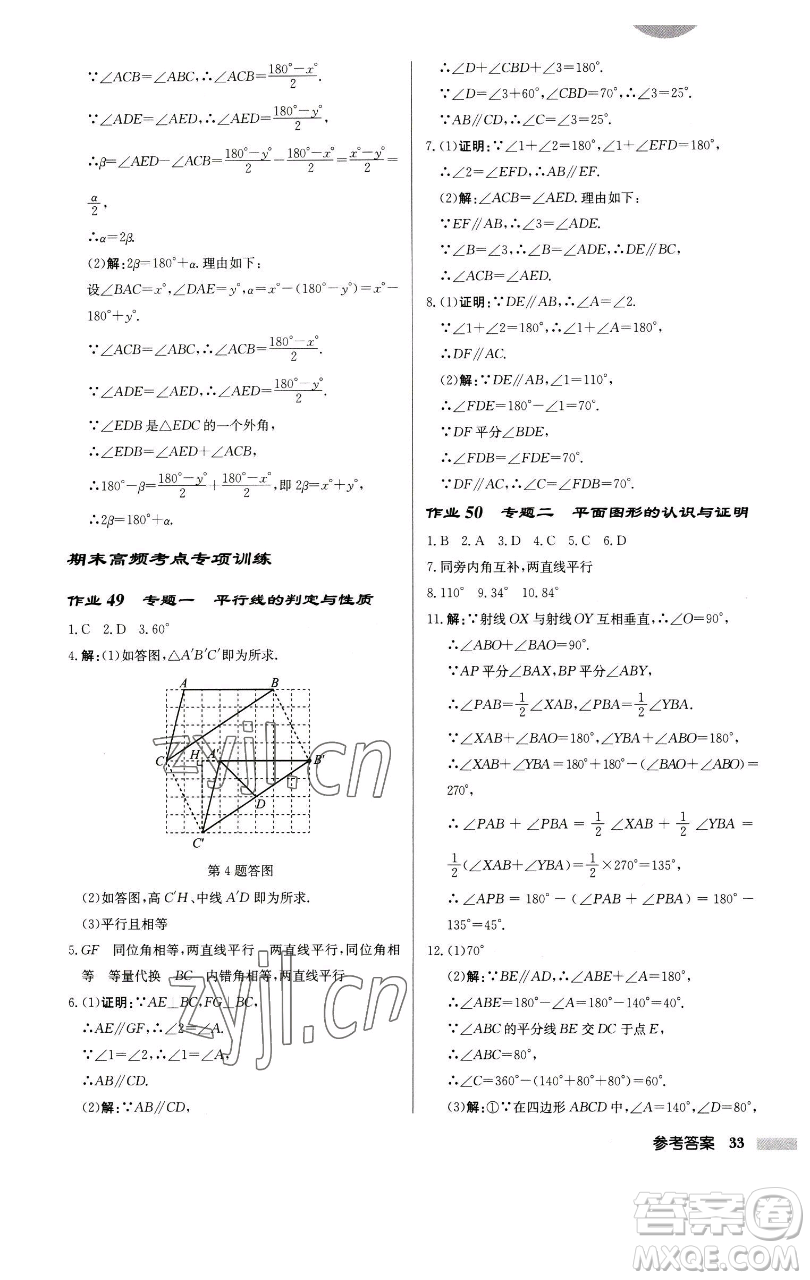 ∵∠ACB=∠ABC,∴∠ACB=(180°-x°)/2.
∵∠ADE=∠AED,∴∠AED=(180°-y°)/2,
∴β=∠AED-∠ACB=(180°-y°)/2-(180°-x°)/2=(x°-y°)/2=
α/2,
∴α=2β.
(2)解:2β=180°+α.理由如下:
设∠BAC=x°,∠DAE=y°,α=x°-(180°-y°)=x°-
180°+y°.
∵∠ACB=∠ABC,∴∠ACB=(180°-x°)/2.
∵∠ADE=∠AED,∴∠AED=(180°-y°)/2.
∵∠EDB是△EDC的一个外角,
∴∠EDB=∠AED+∠ACB,
∴180°-β=(180°-y°)/2+(180°-x°)/2,即2β=x°+y°,
∴2β=180°+α.
期末高频考点专项训练
作业49 专题一 平行线的判定与性质
1.C 2.D 3.60°
4.解:(1)如答图,△A′B′C′即为所求.
A
B
C
H
A′
B′
D
C′
第4题答图
(2)如答图,高C′H、中线A′D即为所求.
(3)平行且相等
5.GF 同位角相等,两直线平行 两直线平行,同位角相
等 等量代换 BC 内错角相等,两直线平行
6.(1)证明:∵AE⊥BC,FG⊥BC,
∴AE∥GF,∴∠2=∠A.
∵∠1=∠2,∴∠1=∠A,
∴AB∥CD.
(2)解:∵AB∥CD,
∴∠D+∠CBD+∠3=180°.
∵∠D=∠3+60°,∠CBD=70°,∴∠3=25°.
∵AB∥CD,∴∠C=∠3=25°.
7.(1)证明:∵∠1+∠2=180°,∠1+∠EFD=180°,
∴∠2=∠EFD,∴AB∥EF.
(2)解:∠ACB=∠AED.理由如下:
∵EF∥AB,∴∠3=∠ADE.
∵∠B=∠3,∴∠B=∠ADE,∴DE∥BC,
∴∠ACB=∠AED.
8.(1)证明:∵DE∥AB,∴∠A=∠2.
∵∠1+∠2=180°,∴∠1+∠A=180°,
∴DF∥AC.
(2)解:∵DE∥AB,∠1=110°,
∴∠FDE=180°-∠1=70°.
∵DF平分∠BDE,
∴∠FDB=∠FDE=70°.
∵DF∥AC,∴∠C=∠FDB=70°.
作业50 专题二 平面图形的认识与证明
1.B 2.A 3.D 4.C 5.C 6.D
7.同旁内角互补,两直线平行
8.110° 9.34° 10.84°
11.解:∵射线OX与射线OY互相垂直,∴∠O=90°,
∴∠ABO+∠BAO=90°.
∵AP平分∠BAX,BP平分∠ABY,
∴∠PAB=1/2∠XAB,∠PBA=1/2∠YBA.
∵∠XAB+∠BAO=180°,∠YBA+∠ABO=180°,
∴∠XAB+∠YBA=180°+180°-(∠BAO+∠ABO)=
270°,
∴∠PAB+∠PBA=1/2∠XAB+1/2∠YBA=
1/2(∠XAB+∠YBA)=1/2×270°=135°,
∴∠APB=180°-(∠PAB+∠PBA)=180°-
135°=45°.
12.(1)70°
(2)解:∵BE∥AD,∠A=140°,
∴∠ABE=180°-∠A=180°-140°=40°.
∵∠ABC的平分线BE交DC于点E,
∴∠ABC=80°,
∴∠C=360°-(140°+80°+80°)=60°.
(3)解:①∵在四边形ABCD中,∠A=140°,∠D=80°,
参考答案 33
zyjl.cn
zyjl.cn
答案圈
MXQE.COM